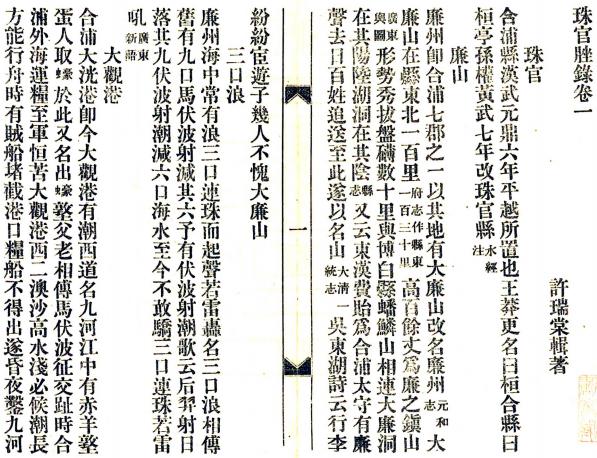 珠官脞錄卷一
許瑞棠輯著
珠官
合浦縣漢武元鼎六年平越所置也王莽更名曰桓合縣曰
桓亭孫權黃武七年改珠官縣水經注
廉山
廉州卽合浦七郡之一以其地有大廉山改名廉州元和志大
廉山在縣東北一百里府志作縣東一百三十里高百餘丈爲廉之鎮山
廣東輿圖形勢秀拔盤礴數十里與博白縣蟠鱗山相連大廉洞
在其陽陸湖洞在其陰縣志又云東漢費貽爲合浦太守有廉
聲去日百姓追送至此遂以名山大淸一統志吳東湖詩云行李
一
紛紛宦遊子幾人不愧大廉山
三口浪
廉州海中常有浪三口連珠而起聲若雷轟名三口浪相傳
舊有九口馬伏波射減其六予有伏波射潮歌云后羿射日
落其九伏波射潮減六口海水至今不敢驕三口連珠若雷
吼廣東新語
大觀港
合浦大洸港卽今大觀港有潮西道名九河江中有赤羊墪
蛋人取蠔於此又名出蠔墪父老相傳馬伏波征交趾時合
浦外海運糧至軍恒苦大觀港西二澳沙高水淺必候潮長
方能行舟時有賊船堵截港口糧船不得出遂昏夜鑿九河